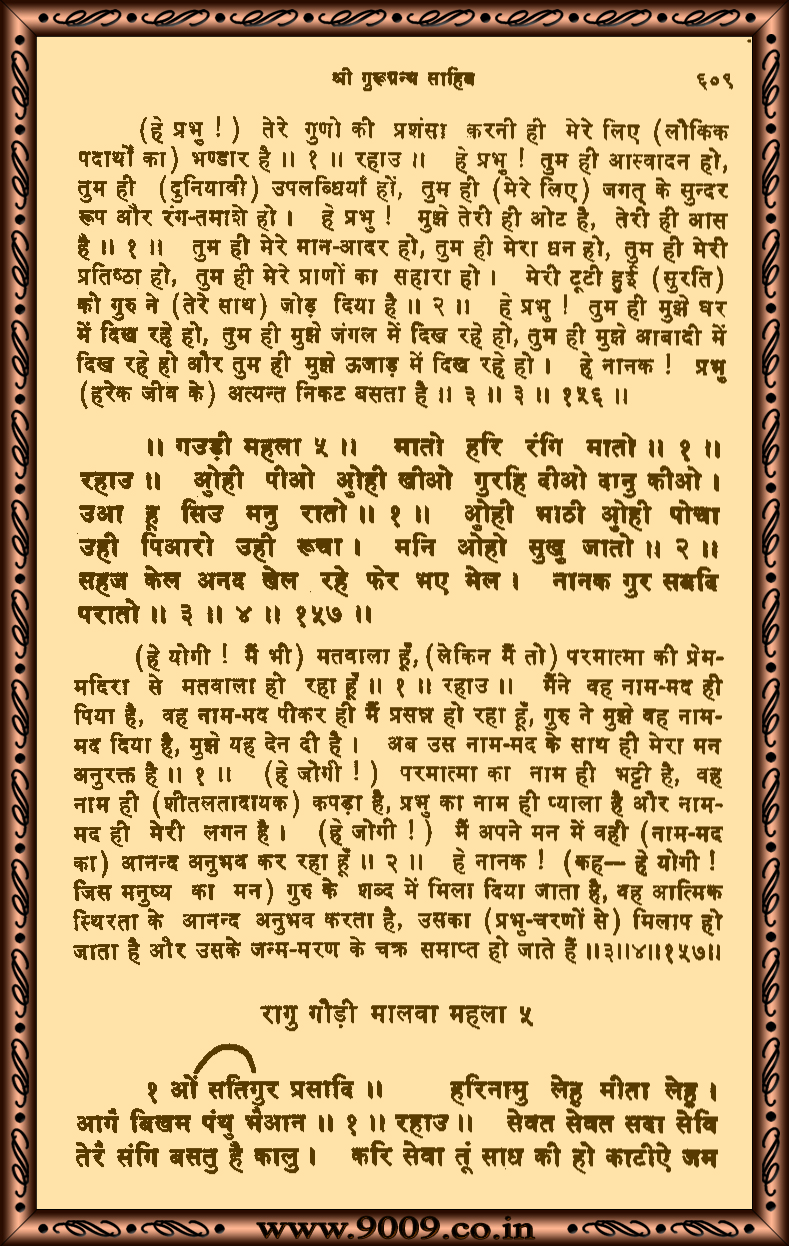 श्री गुरूग्रन्थ साहिब ६०९
(हे प्रभु !) तेरे गुणो की प्रशंसा करनी ही मेरे लिए (लौकिक
पदार्थों का) भण्डार है ॥ १ ॥ रहाउ ॥ हे प्रभु ! तुम ही आस्वादन हो,
तुम ही (दुनियावी) उपलब्धियाँ हों, तुम ही (मेरे लिए) जगत् के सुन्दर
रूप और रंग-तमाशे हो । हे प्रभु ! मुझे तेरी ही ओट है, तेरी ही आस
है ॥ १ ॥ तुम ही मेरे मान-आदर हो, तुम ही मेरा धन हो, तुम ही मेरी
प्रतिष्ठा हो, तुम ही मेरे प्राणों का सहारा हो । मेरी टूटी हुई (सुरति)
को गुरु ने (तेरे साथ) जोड़ दिया है ॥ २ ॥ हे प्रभु ! तुम ही मुझे घर
में दिख रहे हो, तुम ही मुझे जंगल में दिख रहे हो, तुम ही मुझे आबादी में
दिख रहे हो और तुम ही मुझे ऊजाड़ में दिख रहे हो । हे नानक ! प्रभु
(हरेक जीव के) अत्यन्त निकट बसता है ॥ ३ ॥ ३ ॥ १५६ ॥
॥ गउड़ी महला ५ ॥ मातो हरि रंगि मातो ॥ १ ॥
रहाउ ॥ ओुही पीओ ओुही खीओ गुरहि दीओ दानु कीओ ।
उआ हू सिउ मनु रातो ॥ १ ॥ ओुही भाठी ओुही पोचा
उही पिआरो उही रूचा । मनि ओहो सुखु जातो ॥ २ ॥
सहज केल अनद खेल रहे फेर भए मेल । नानक गुर सबदि
परातो ॥ ३ ॥ ४ ॥ १५७ ॥
(हे योगी ! मैं भी) मतवाला हूँ, (लेकिन मैं तो) परमात्मा की प्रेम-
मदिरा से मतवाला हो रहा हूँ ॥ १ ॥ रहाउ ॥ मैंने वह नाम-मद ही
पिया है, वह नाम-मद पीकर ही मैं प्रसन्न हो रहा हूँ, गुरु ने मुझे वह नाम-
मद दिया है, मुझे यह देन दी है । अब उस नाम-मद के साथ ही मेरा मन
अनुरक्त है ॥ १ ॥ (हे जोगी !) परमात्मा का नाम ही भट्टी है, वह
नाम ही (शीतलतादायक) कपड़ा है, प्रभु का नाम ही प्याला है और नाम-
मद ही मेरी लगन है । (हे जोगी !) मैं अपने मन में वही (नाम-मद
का) आनन्द अनुभव कर रहा हूँ ॥ २ ॥ हे नानक ! (कह— हे योगी !
जिस मनुष्य का मन) गुरु के शब्द में मिला दिया जाता है, वह आत्मिक
स्थिरता के आनन्द अनुभव करता है, उसका (प्रभु-चरणों से) मिलाप हो
जाता है और उसके जन्म-मरण के चक्र समाप्त हो जाते हैं ॥३॥४॥१५७॥
रागु गौड़ी मालवा महला ५
१ ओं सतिगुर प्रसादि ॥ हरिनामु लेहु मीता लेहु ।
आगै बिखम पंथु भैआन ॥ १ ॥ रहाउ ॥ सेवत सेवत सदा सेवि
तेरै संगि बसतु है कालु । करि सेवा तूं साध की हो काटीऐ जम
www.9009.co.in